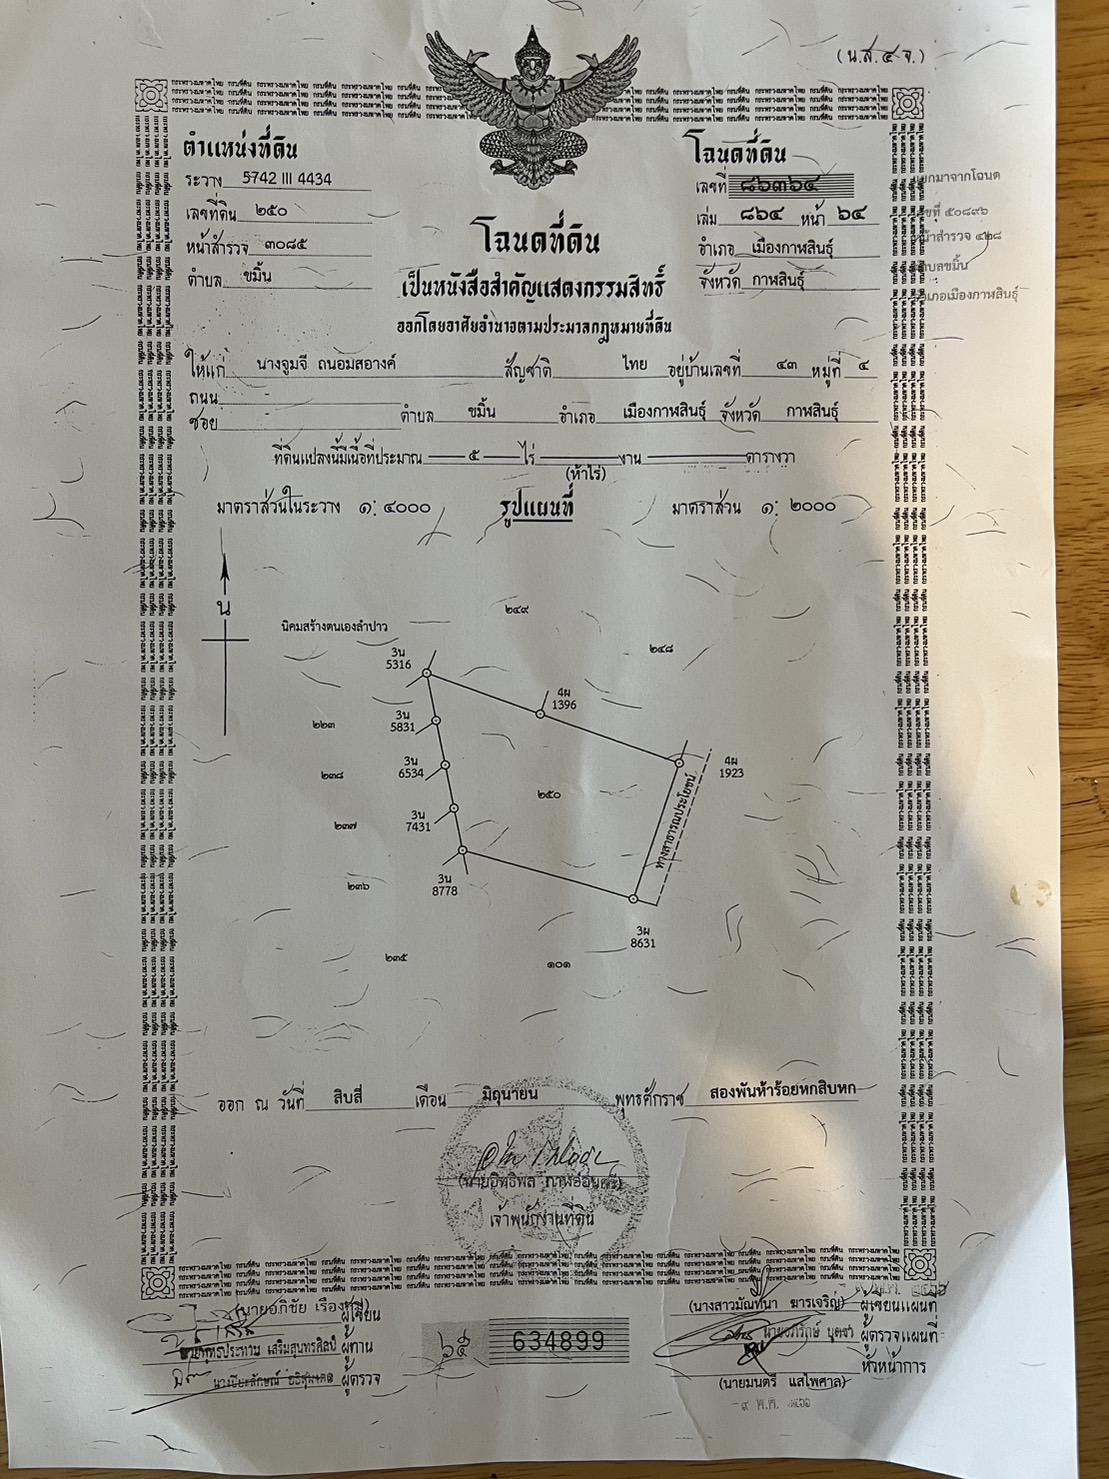 (น.ส.๔ จ.)
ตำแหน่งที่ดิน
ระวาง 5742 III 4434
เลขที่ดิน ๒๕๐
หน้าสำรวจ ๓๐๘๕
ตำบล ขมิ้น
โฉนดที่ดิน
เลขที่ ๘๖๓๖๔
เล่ม ๘๖๔ หน้า ๖๔
อำเภอ เมืองกาฬสินธุ์
จังหวัด กาฬสินธุ์
แยกมาจากโฉนด
เลขที่ ๕๐๘๙๖
หน้าสำรวจ ๔๒๘
ตำบลขมิ้น
อำเภอเมืองกาฬสินธุ์
โฉนดที่ดิน
เป็นหนังสือสำคัญแสดงกรรมสิทธิ์
ออกโดยอาศัยอำนาจตามประมวลกฎหมายที่ดิน
ให้แก่ นางจูมจี ถนอมสอางค์ สัญชาติ ไทย อยู่บ้านเลขที่ ๔๓ หมู่ที่ ๔
ถนน
ซอย ตำบล ขมิ้น อำเภอ เมืองกาฬสินธุ์ จังหวัด กาฬสินธุ์
ที่ดินแปลงนี้มีเนื้อที่ประมาณ ๕ ไร่ งาน ตารางวา
(ห้าไร่)
มาตราส่วนในระวาง ๑: ๔๐๐๐ รูปแผนที่ มาตราส่วน ๑: ๒๐๐๐
น
นิคมสร้างตนเองลำปาว
๒๔๙
๒๔๘
3น
5316
4ผ
1396
๒๒๓
3น
5831
3น
6534
4ผ
1923
๒๓๘
๒๕๐
ทางสาธารณประโยชน์
3น
7431
๒๓๗
3น
8778
๒๓๖
3ผ
8631
๒๓๕
๑๐๑
ออก ณ วันที่ สิบสี่ เดือน มิถุนายน พุทธศักราช สองพันห้าร้อยหกสิบหก
เจ้าพนักงานที่ดิน
(นายอภิชัย ผู้เขียน
เสริมสุนทรศิลป์ ผู้ทาน
ผู้ตรวจ
๖๕ 634899
(นางสาวมัณฑนา ฆารเจริญ) ผู้เขียนแผนที่
ผู้ตรวจแผนที่
หัวหน้าการ
(นายมนตรี แสไพศาล)
๙ พ.ค.